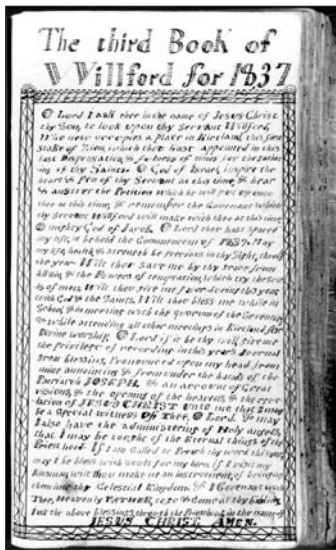 The third Book of
Willford for 1837
O Lord I ask thee in the name of Jesus Christ
thy Son, to look upon thy Servant Willford,
Who now occupies a place in Kirtland, this first
Stake of Zion, which thou hast appointed in this
last Dispensation, & fulness of times for the gather
ing of thy Saints. O God of Israel, inspire the
heart & Pen of thy Servant at this time, & hear
& answer the Petition which he will put up unto
thee at this time, & remember the Covenant which
thy servant Willford will make with thee at this time,
O mighty God of Jacob. O Lord thou hast spared
my life, to behold the Commencement of 1837. May
my life, health & strength be precious in thy sight, through
the year. Wilt thou save me by thy grace from
all sin, & the Powers of temptation, which try the souls
of men. Wilt thou give me favor during this year
with God & the Saints. Wilt thou bless me while in
School, & in meeting with the quorum of the Seventies
& while attending all other meetings in Kirtland for
Divine worship. O Lord if it be thy will, give me
the privilege of recording in this year's Journal
great blessings, Pronounced upon my head from
mine annointing & from under the hands of the
Patriarch JOSEPH, & an account of Great
visions, & the opening of the heavens, & the reve
lation of JESUS CHRIST unto me that I may
be a Special Witness Of Thee, O Lord. & may
I also have the administering of Holy angels,
that I may be taught of the Eternal things of the
Priesthood. If I am called to Preach thy word this year,
may I be bless with souls for my hire, if I visit my
kinsman, wilt thou make me an instrument, of bringing
them into thy Celestial Kingdom. & I Covenant with
Thee, Heavenly FATHER, to go & Come at thy bidding.
Put the above blessings, through the Priesthood, in the name of
JESUS CHRIST AMEN.